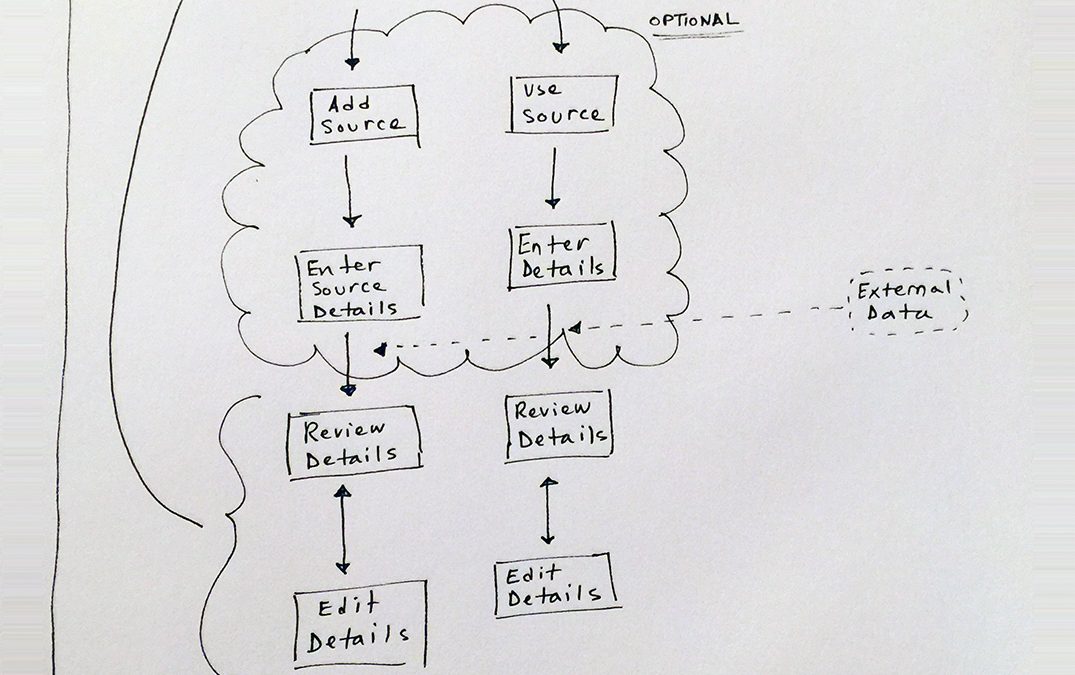 OPTIONAL
Add
Source
Use
Source
Enter
Source
Details
Enter
Details
External
Data
Review
Details
Review
Details
Edit
Details
Edit
Details